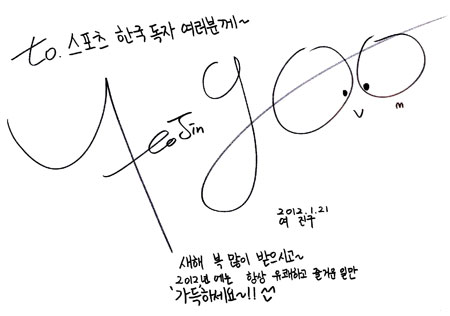 to. 스포츠 한국 독자 여러분께~
Yeo Jin goo
2012.1.21
여 진구
새해 복 많이 받으시고~
2012년에는 항상 유쾌하고 즐거운 일만
가득하세요~!!